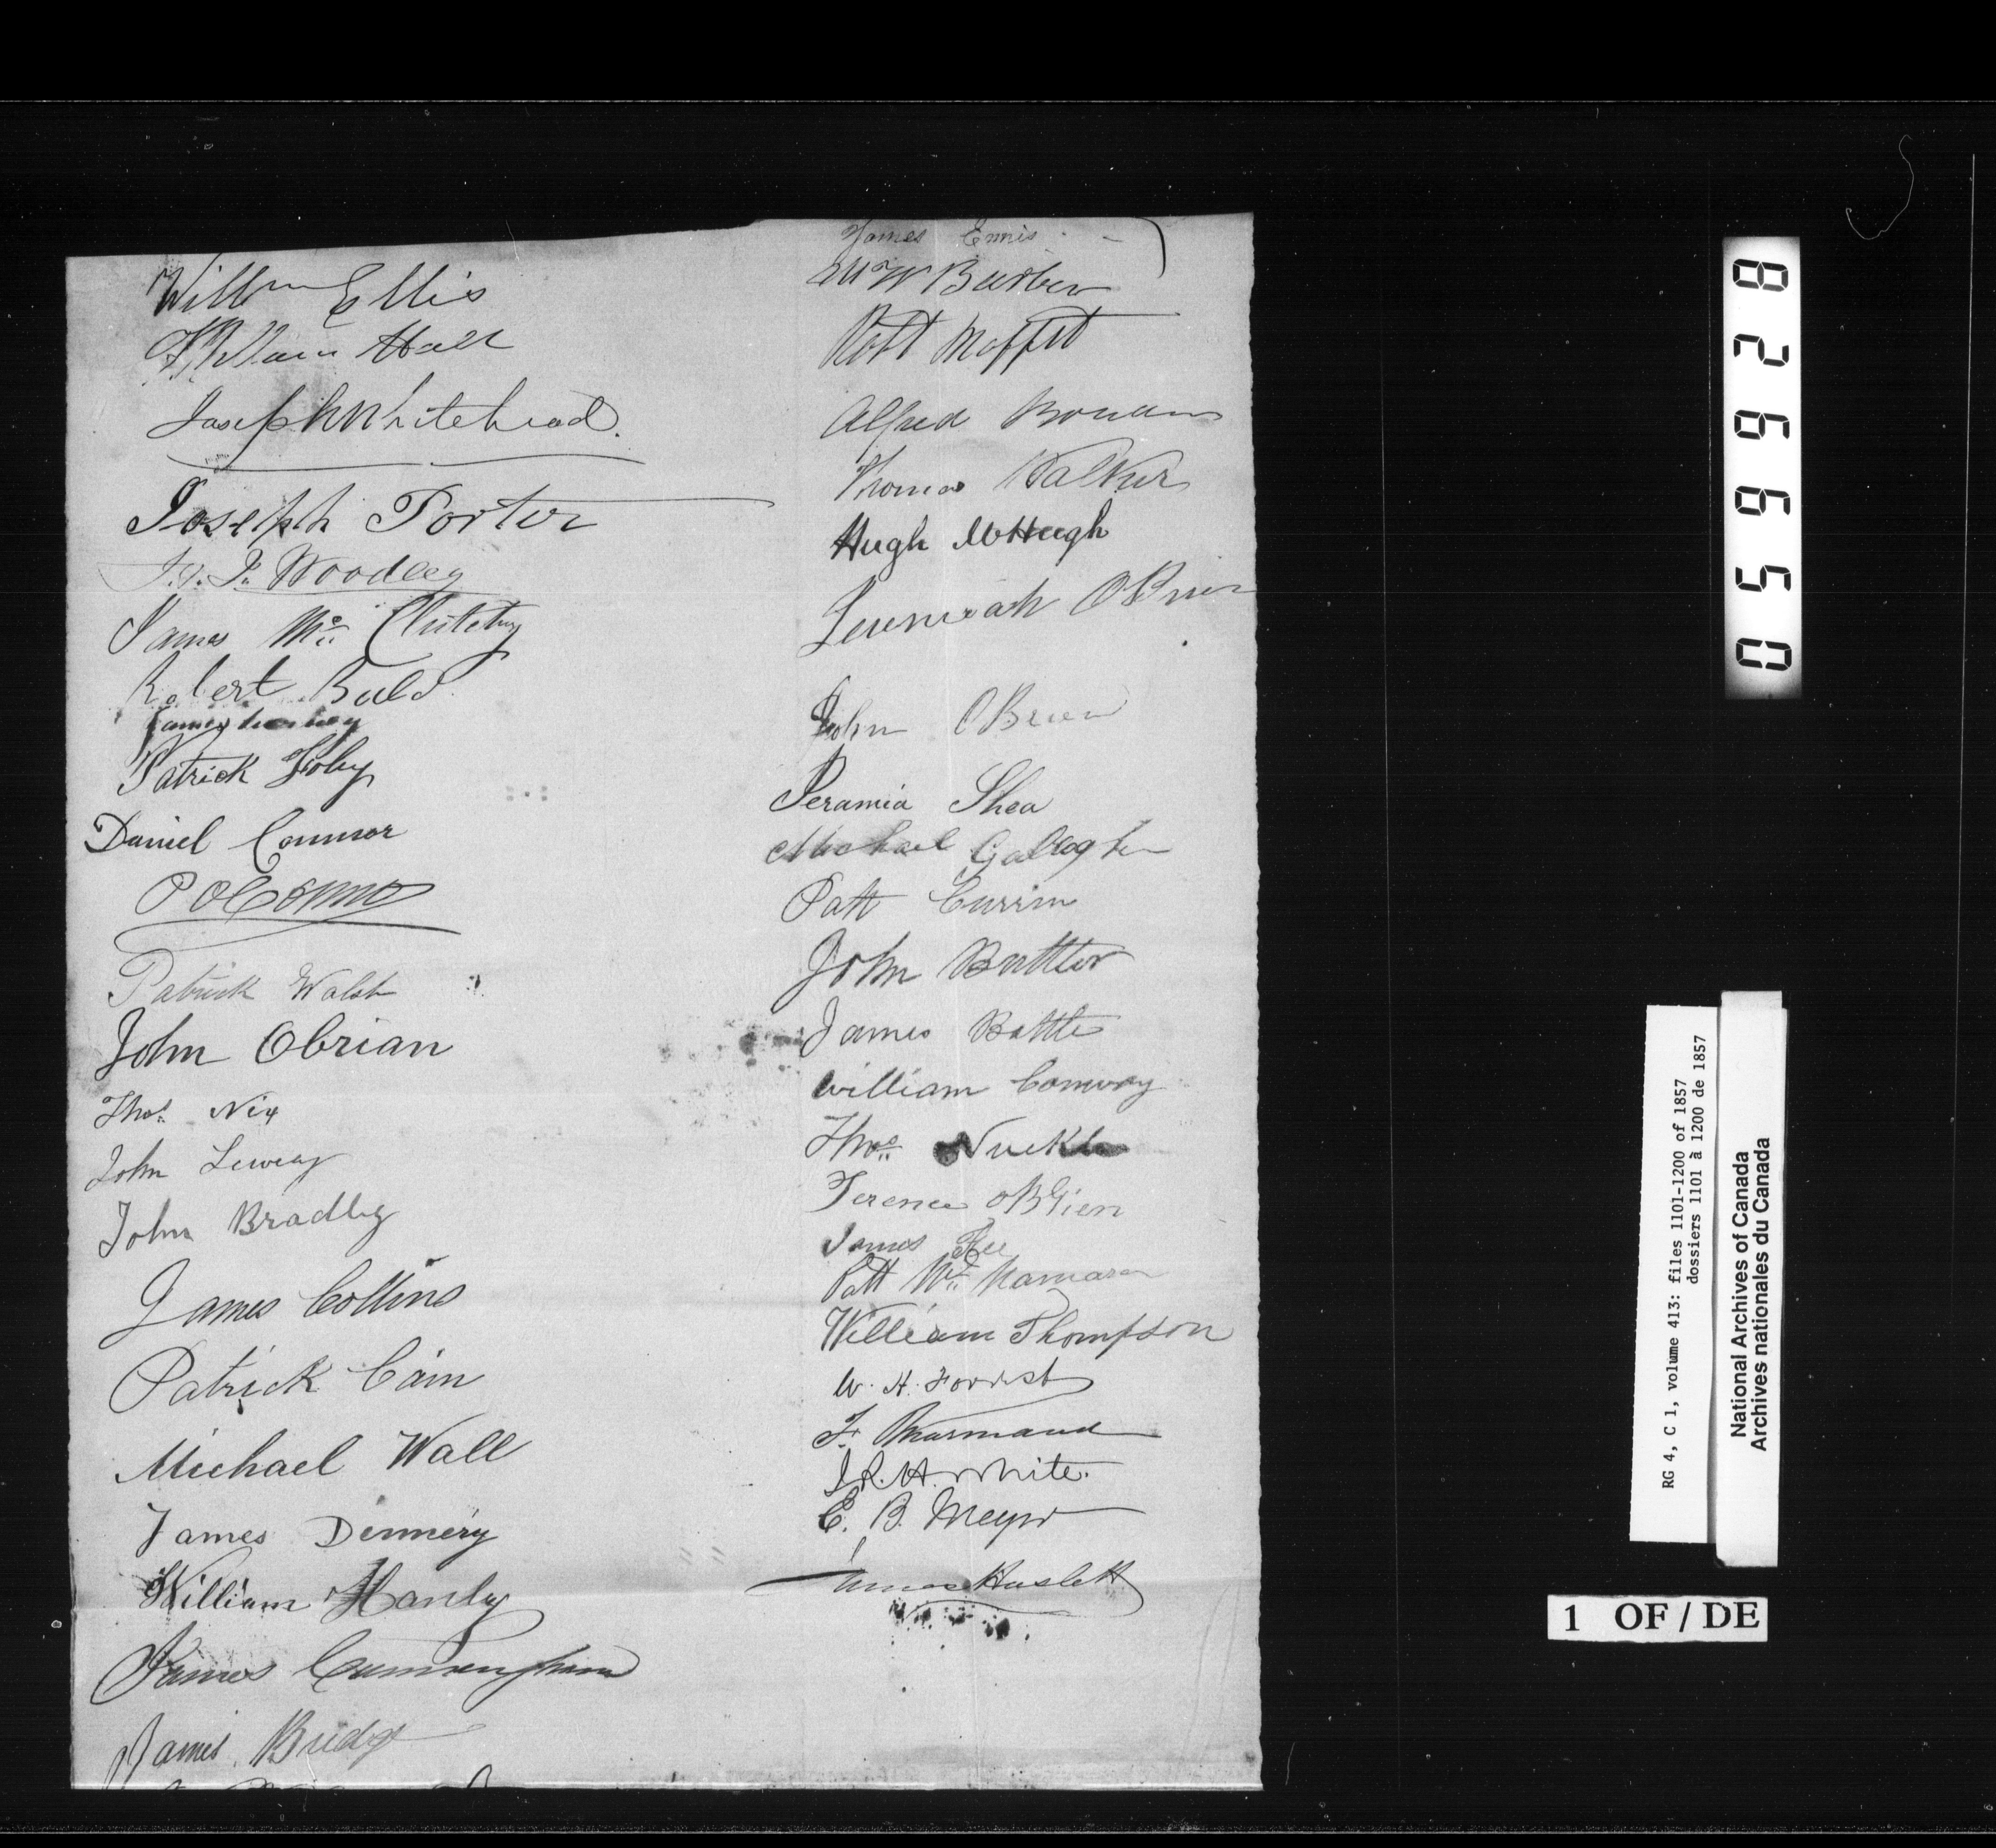 Willm Ellis
William Hall
Joseph Whitehead.
Joseph Porter
Woodley
James Mc
Robert Bald
James
Patrick Foley
Daniel Connor
P OConnor
Patrick Walsh
John Obrian
Thos. Nix
John
John Bradley
James Collins
Patrick Cain
Michael Wall
James Dennery
William Hanly
James Cunningham
James Bridge
James Ennis
Wm W Barber
Robt Moffet
Alfred
Thomas Walker
Hugh McHugh
Jeremiah OBrien
John OBrien
Peramia Shea
Michael Gallagher
Patt Currin
John Buttler
James Battle
William Conway
Thos
Terence OBrien
James Fee
Patt Mc Namara
William Thompson
W. H. Forrest
F.
J. R. H. White.
E. B. Meyer
James Haslett
059628
RG 4, C 1, volume 413: files 1101-1200 of 1857
dossiers 1101 à 1200 de 1857
National Archives of Canada
Archives nationales du Canada
1 OF / DE